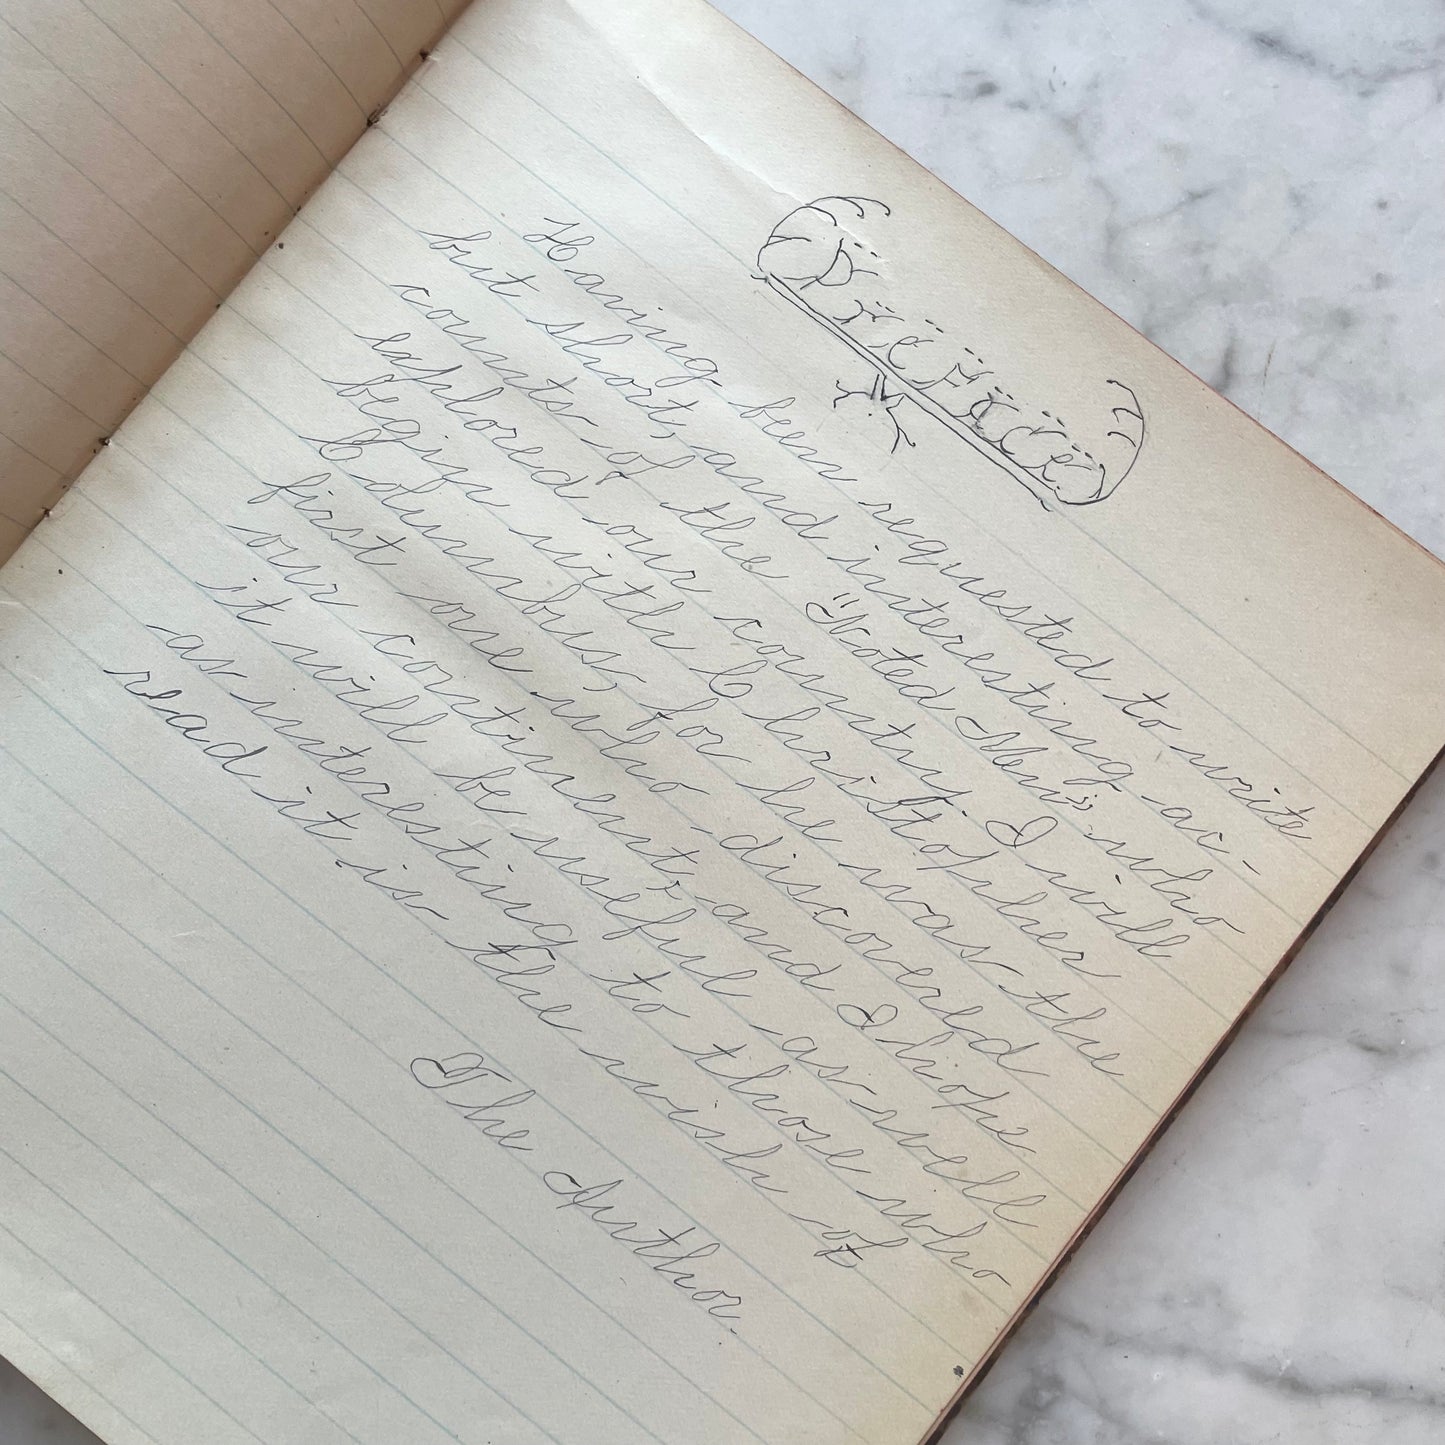 Preface.
Having been requested to write
but short, and interesting ac-
counts of the "Noted Men", who
explored our country. I will
begin with Christopher
Columbus, for he was the
first one who discovered
our continent, and I hope
it will be useful as well
as interesting to those who
read it is the wish of
The Author.